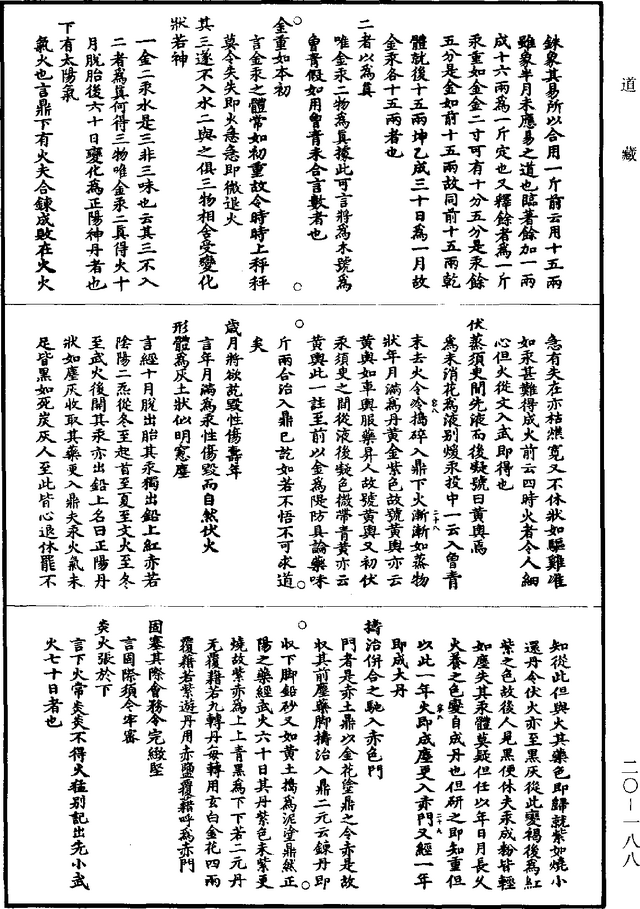 道藏
銖象其易所以合用一斤前云用十五兩
雖象半月未應易之道也臨著餘加一兩
成十六兩為一斤定也又釋餘者為一斤
汞重如金金二寸可有十分五分是汞餘
五分是金如前十五兩故同前十五兩乾
體就後十五兩坤乙成三十日為一月故
金汞各十五兩者也
二者以為真
唯金汞二物為真據此可言將為木號為
曾青假如用曾青未合言數者也
金重如本初
言金汞之體常如初重故令時時上秤秤
莫令失失即火急急即微退火
其三遂不入水二與之俱三物相含受變化
狀若神
一金二汞水是三非三味也云其三不入
二者為真何得三物唯金汞二真得火十
月脫胎後六十日變化為正陽神丹者也
下有太陽氣
氣火也言鼎下有火夫合鍊成敗在火火
急有失在亦枯燥寬又不休狀如驅雞准
如汞甚難得成火前云四時火者令人細
心但火從文入武即得也
伏蒸須臾間先液而後凝號曰黃輿焉
為末消花為液別煖汞投中一云入曾青
末去火令冷搗碎入鼎下火漸漸如蒸物
狀年月滿為丹黃金紫色故號黃輿亦云
黃輿如車輿服藥昇人故號黃輿又初伏
汞須臾之間從液後凝色微帶青黃亦云
黃輿此一註至前以金為隄防具論藥味
斤兩合治入鼎已訖如若不悟不可求道
矣
歲月將欲訖毀性傷壽年
言年月滿為汞性傷毀而自然伏火
形體為灰土狀似明窻塵
言經十月脫出胎其汞獨出鉛上紅赤若
陰陽二炁從冬至起首至夏至文火至冬
至武火後開其汞亦出鉛上名曰正陽丹
狀如塵灰收取其藥更入鼎夫汞火氣未
足皆黑如死炭灰人至此皆心退休罷不
知從此但與火其藥色即歸就紫如燒小
還丹令伏火亦至黑灰從此變褐後為紅
紫之色故後人見黑便休夫汞成粉皆輕
如塵失其汞體莫疑但任以年日月長久
火養之色變自成丹也但研之即知重但
以此一年火即成塵更入赤門又經一年
即成大丹
擣治併合之馳入赤色門
門者是赤土鼎以金花塗鼎之令赤是故
収其前塵藥脚擣治入鼎二元云鍊丹即
収下脚鉛砂又如黃土搗為泥塗鼎然正
陽之藥經武火六十日其丹紫色未紫更
燒故紫赤為上上青黑為下下若二元丹
无覆藉若九轉丹母轉用玄白金花四兩
覆藉若紫遊丹用赤鹽覆藉呼為赤門
固塞其際會務令完緻堅
言固際須令牢密
炎火張於下
言下火常炎炎不得火猛別記出先小武
火七十日者也
二〇－一八八